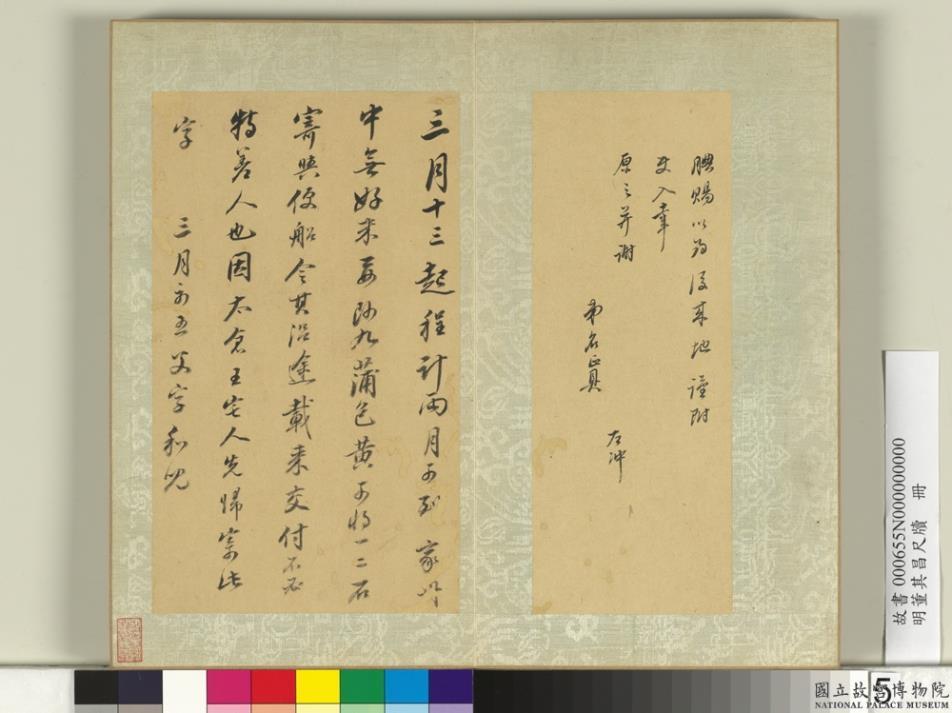 賜以為後來地 謹附
入
原之并謝
弟名正具
左沖
三月十三起程計兩月可到家
中無好米 九蒲包黃 可將一二石
寄與便船令其沿途載來交付不必
特差人也因太倉王宅人先歸寄此
字 三月 五 父字和兒
故書000655N000000000
明董其昌尺牘 冊
5
國立故宮博物院
NATIONAL PALACE MUSEUM